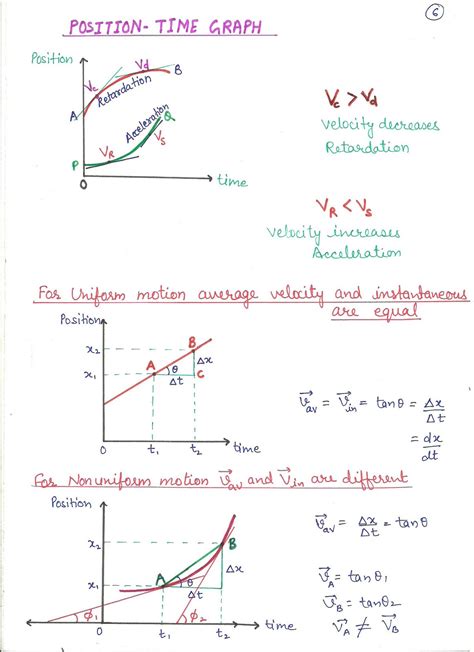 6
POSITION-TIME GRAPH
Position
Vc
Vd
B
A
Retardation
Acceleration
Q
VR
VS
P
0
time
Vc > Vd
Velocity decreases
Retardation
VR < VS
Velocity increases
Acceleration
For Uniform motion average velocity and instantaneous
are equal
Position
x2
B
A
θ
Δx
x1
Δt
C
0
t1
t2
time
v⃗av = v⃗in = tanθ = Δx/Δt
= dx/dt
For Nonuniform motion v⃗av and V⃗in are different
Position
x2
B
A
θ
Δx
x1
Δt
ϕ1
ϕ2
0
t1
t2
time
v⃗av = Δx/Δt = tanθ
v⃗A = tanθ1
v⃗B = tanθ2
V⃗A ≠ V⃗B